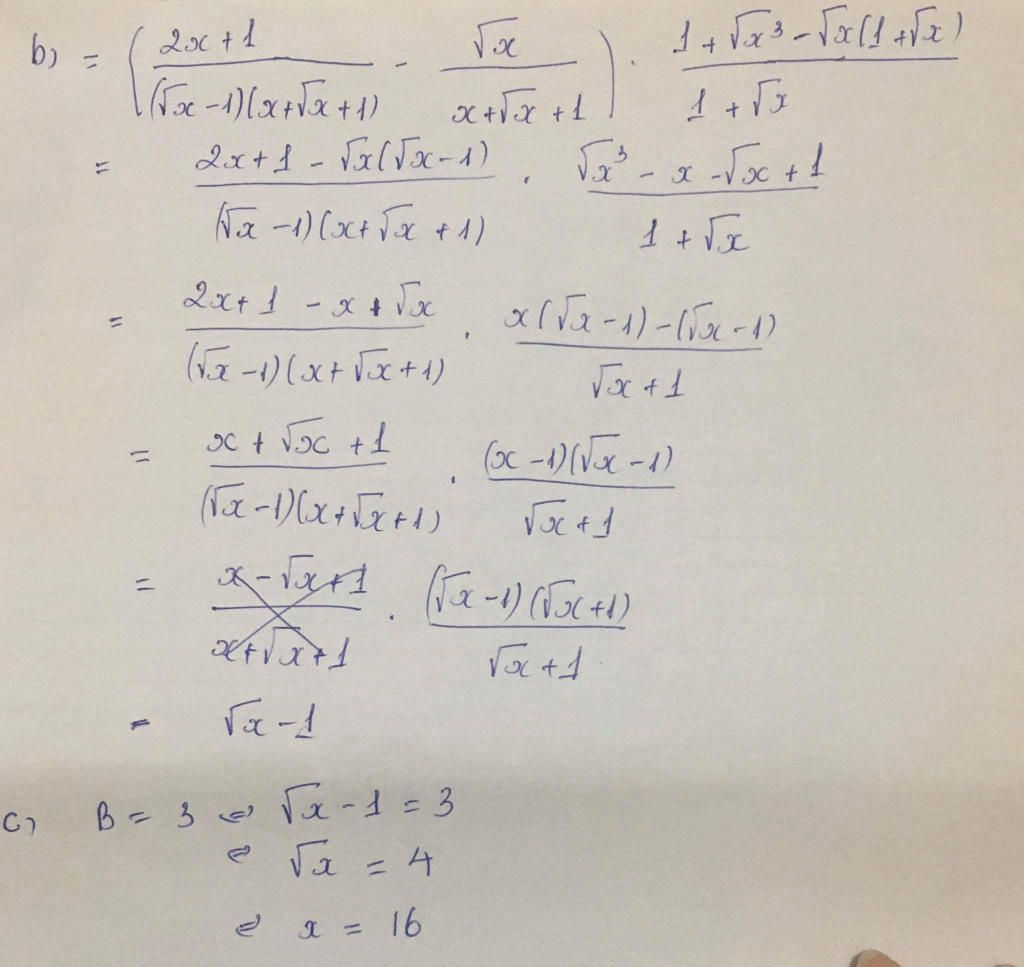 b) = ( (2x+1)/((√x −1)(x+√x +1)) − √x/(x+√x +1) ) . (1 + √x³ − √x(1+√x))/(1 + √x)
= (2x+1 − √x(√x−1))/((√x −1)(x+√x +1)) . (√x³ − x −√x + 1)/(1 + √x)
= (2x+1 − x + √x)/((√x −1)(x+√x+1)) . (x(√x −1)−(√x −1))/(√x +1)
= (x + √x +1)/((√x −1)(x+√x+1)) . ((x −1)(√x −1))/(√x +1)
= (x−√x+1)/(x+√x+1) . ((√x −1)(√x+1))/(√x +1)
= √x −1
c) B = 3 ⇔ √x −1 = 3
⇔ √x = 4
⇔ x = 16